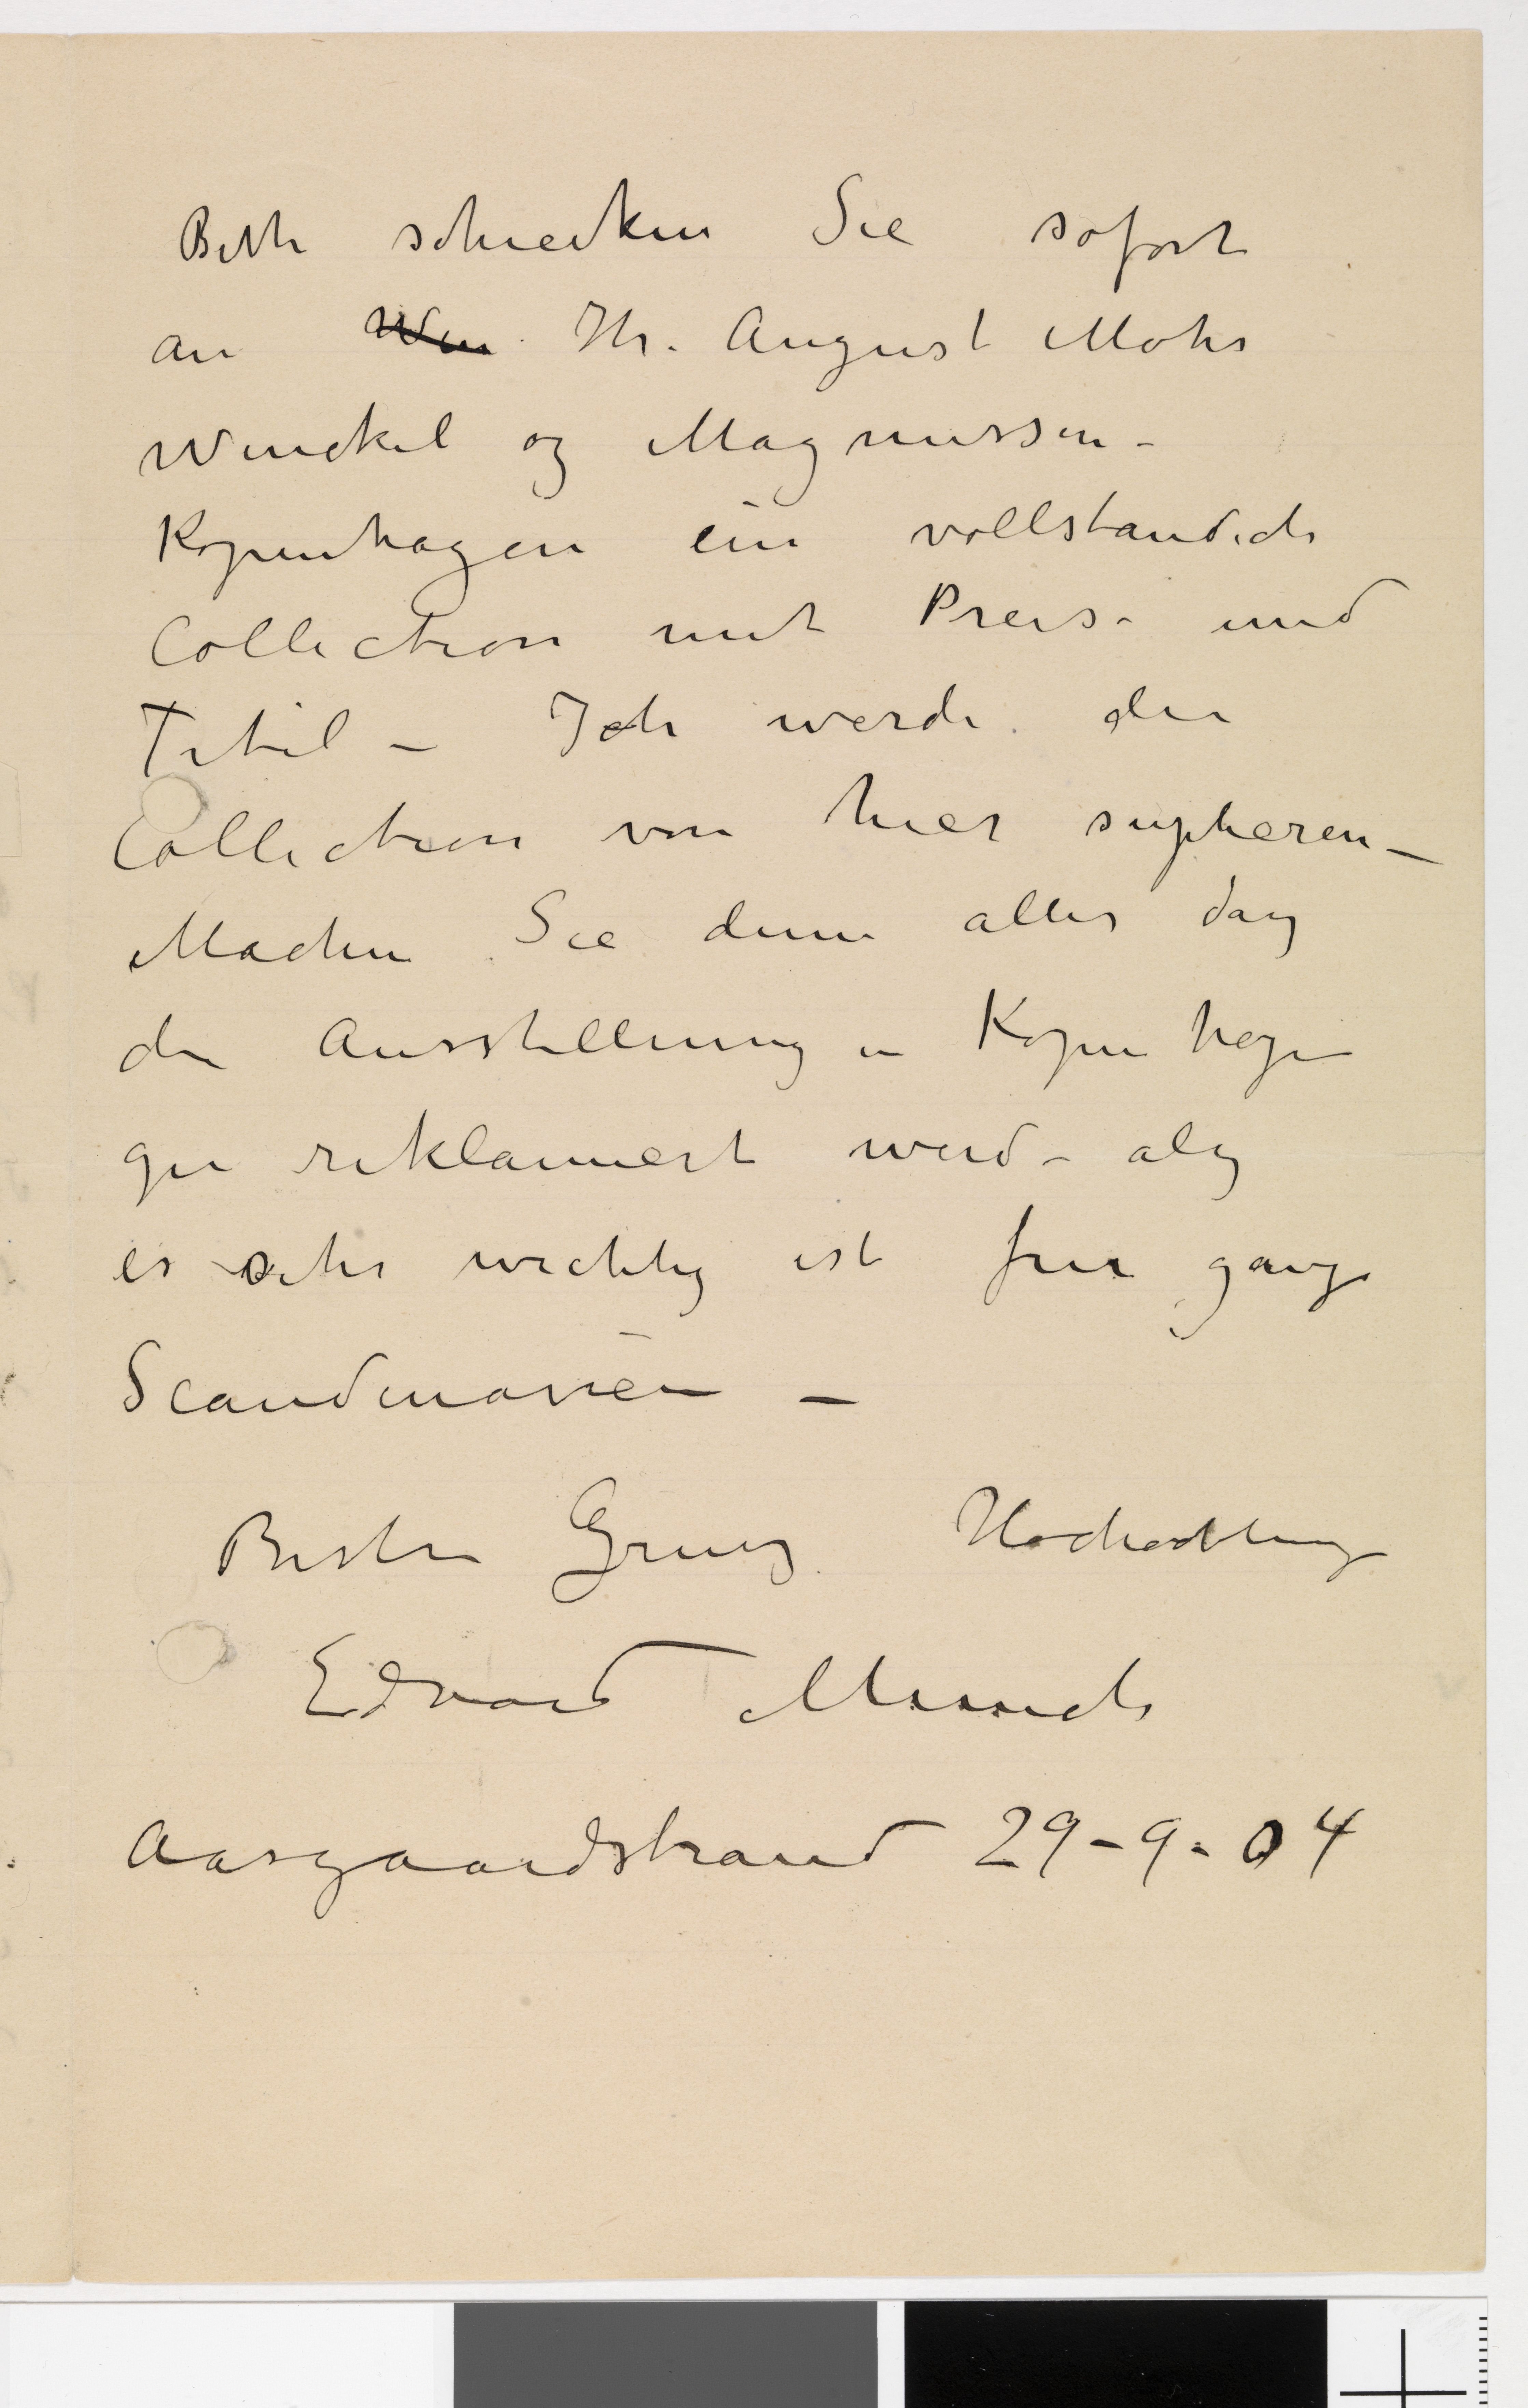 Bitte schiecken Sie sofort
an Win Hr. August Mohr
Winckel og Magnussen –
Kopenhagen ein vollstandich
Collection mit Preis- und
Titel – Ich werde die
Collection von hier supleren –
Machen Sie denn alles daß
die Ausstellung in Kopenhagen
gu reklamiert wird – alß
es sehr wichtig ist fur ganze
Scandinavien –
Besten Gruß Hochachtung
Edvard Munch
Aasgaardstrand 29-9-04